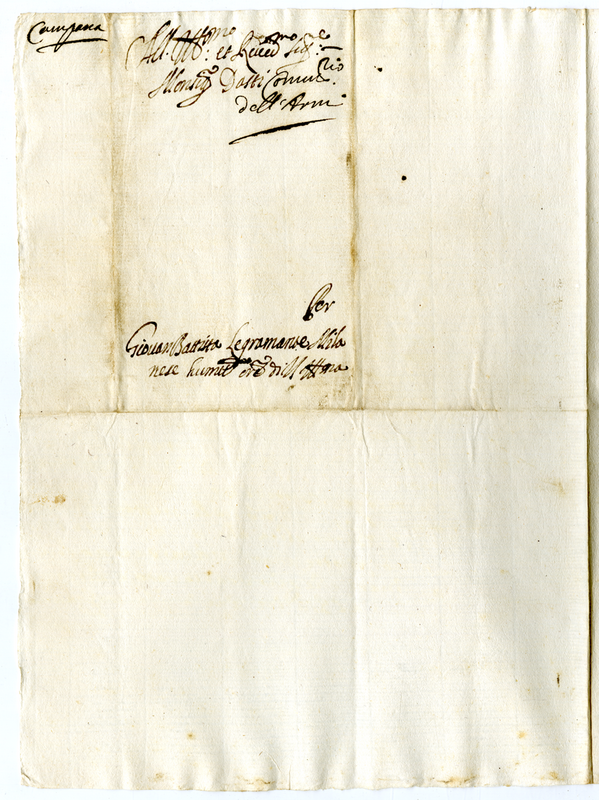 Campana
All' Ill.mo et Reved.mo Sig.re
Monsig.r Datti Comiss.rio
dell' Armi
Per
Giovan Battista Legramante Mila
nese humil.mo or.e di V S Ill.ma